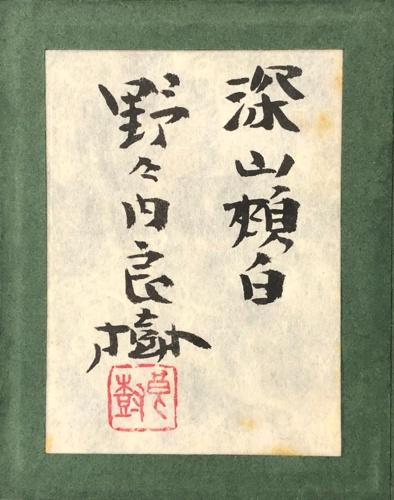 深山頬白
野々内良樹
良樹